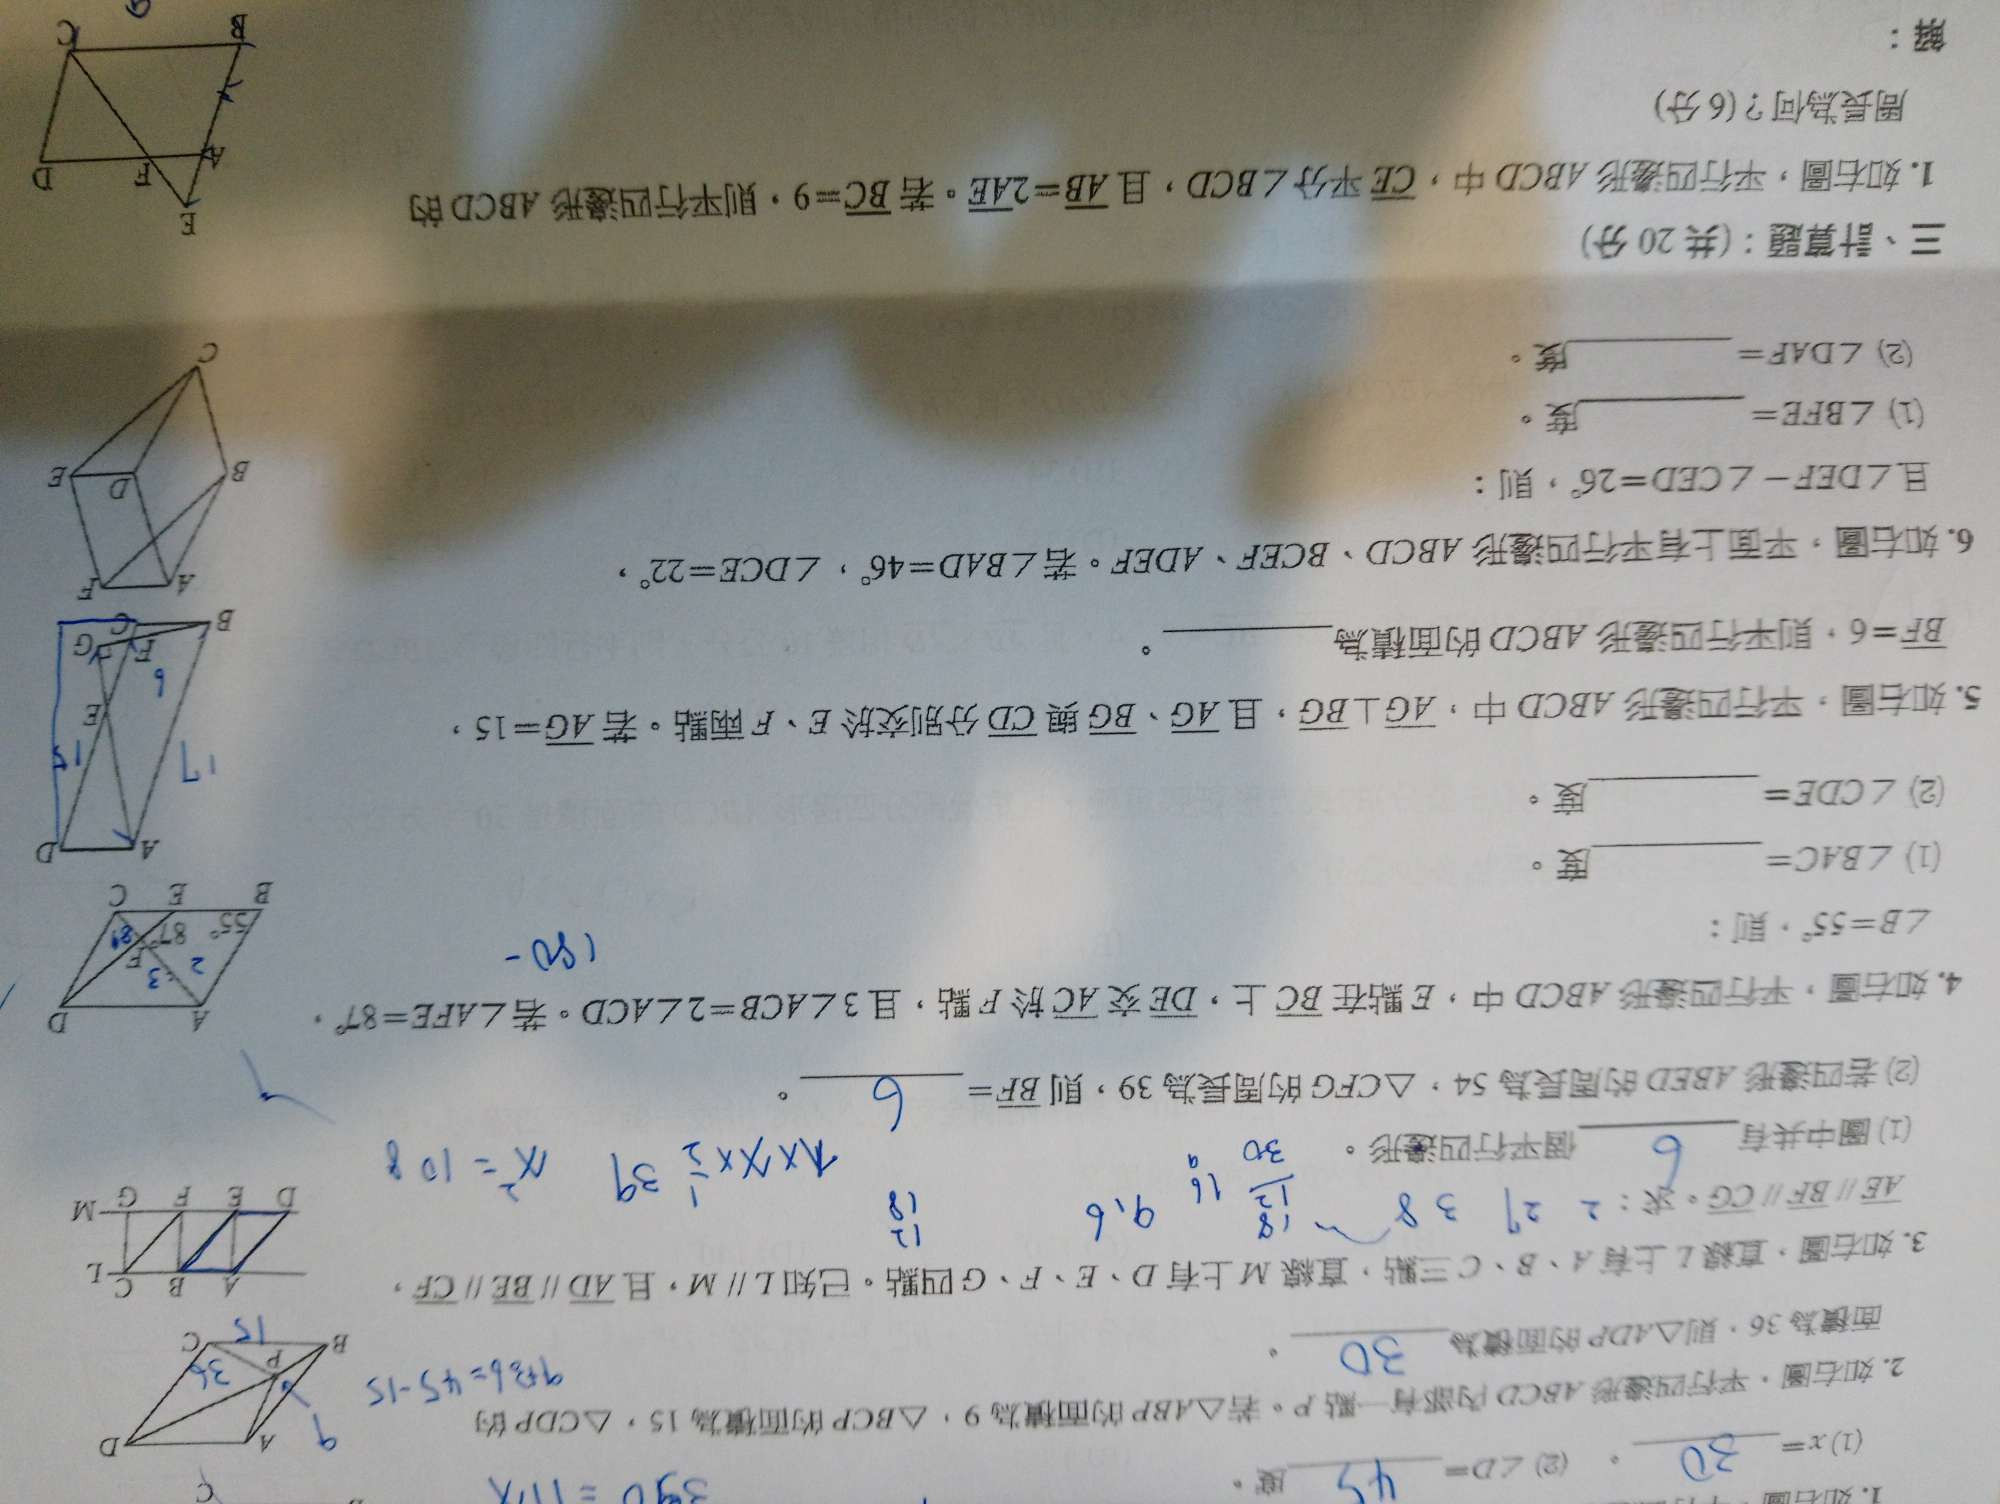 1. 如右圖，平行四
390 = 11x
(1) x= 30 。 (2) ∠D= 45 度。
2. 如右圖，平行四邊形 ABCD 內部有一點 P。若△ABP 的面積為 9，△BCP 的面積為 15，△CDP 的
面積為 36，則△ADP 的面積為 30 。
9+36=45-15
A D B C P 9 36 15
3. 如右圖，直線 L 上有 A、B、C 三點，直線 M 上有 D、E、F、G 四點。已知 L // M，且 AD // BE // CF，
AE // BF // CG。求：
2 27 38
18 12 30
16 9
9,6
12 18
(1) 圖中共有 6 個平行四邊形。
39 x² = 108
(2) 若四邊形 ABED 的周長為 54，△CFG 的周長為 39，則 BF= 6 。
A B C L D E F G M
4. 如右圖，平行四邊形 ABCD 中，E 點在 BC 上，DE 交 AC 於 F 點，且 3∠ACB=2∠ACD。若∠AFE=87°，
∠B=55°，則：
180-
(1) ∠BAC= 度。
(2) ∠CDE= 度。
A D B E C F 55° 87° 2 3
5. 如右圖，平行四邊形 ABCD 中，AG⊥BG，且 AG、BG 與 CD 分別交於 E、F 兩點。若 AG=15，
BF=6，則平行四邊形 ABCD 的面積為 。
A D B C E F G 17 15 6
6. 如右圖，平面上有平行四邊形 ABCD、BCEF、ADEF。若∠BAD=46°，∠DCE=22°，
且∠DEF－∠CED=26°，則：
(1) ∠BFE= 度。
(2) ∠DAF= 度。
A F B D E C
三、計算題：(共 20 分)
1. 如右圖，平行四邊形 ABCD 中，CE 平分∠BCD，且 AB=2AE。若 BC=9，則平行四邊形 ABCD 的
周長為何？(6 分)
解：
E A F D B C